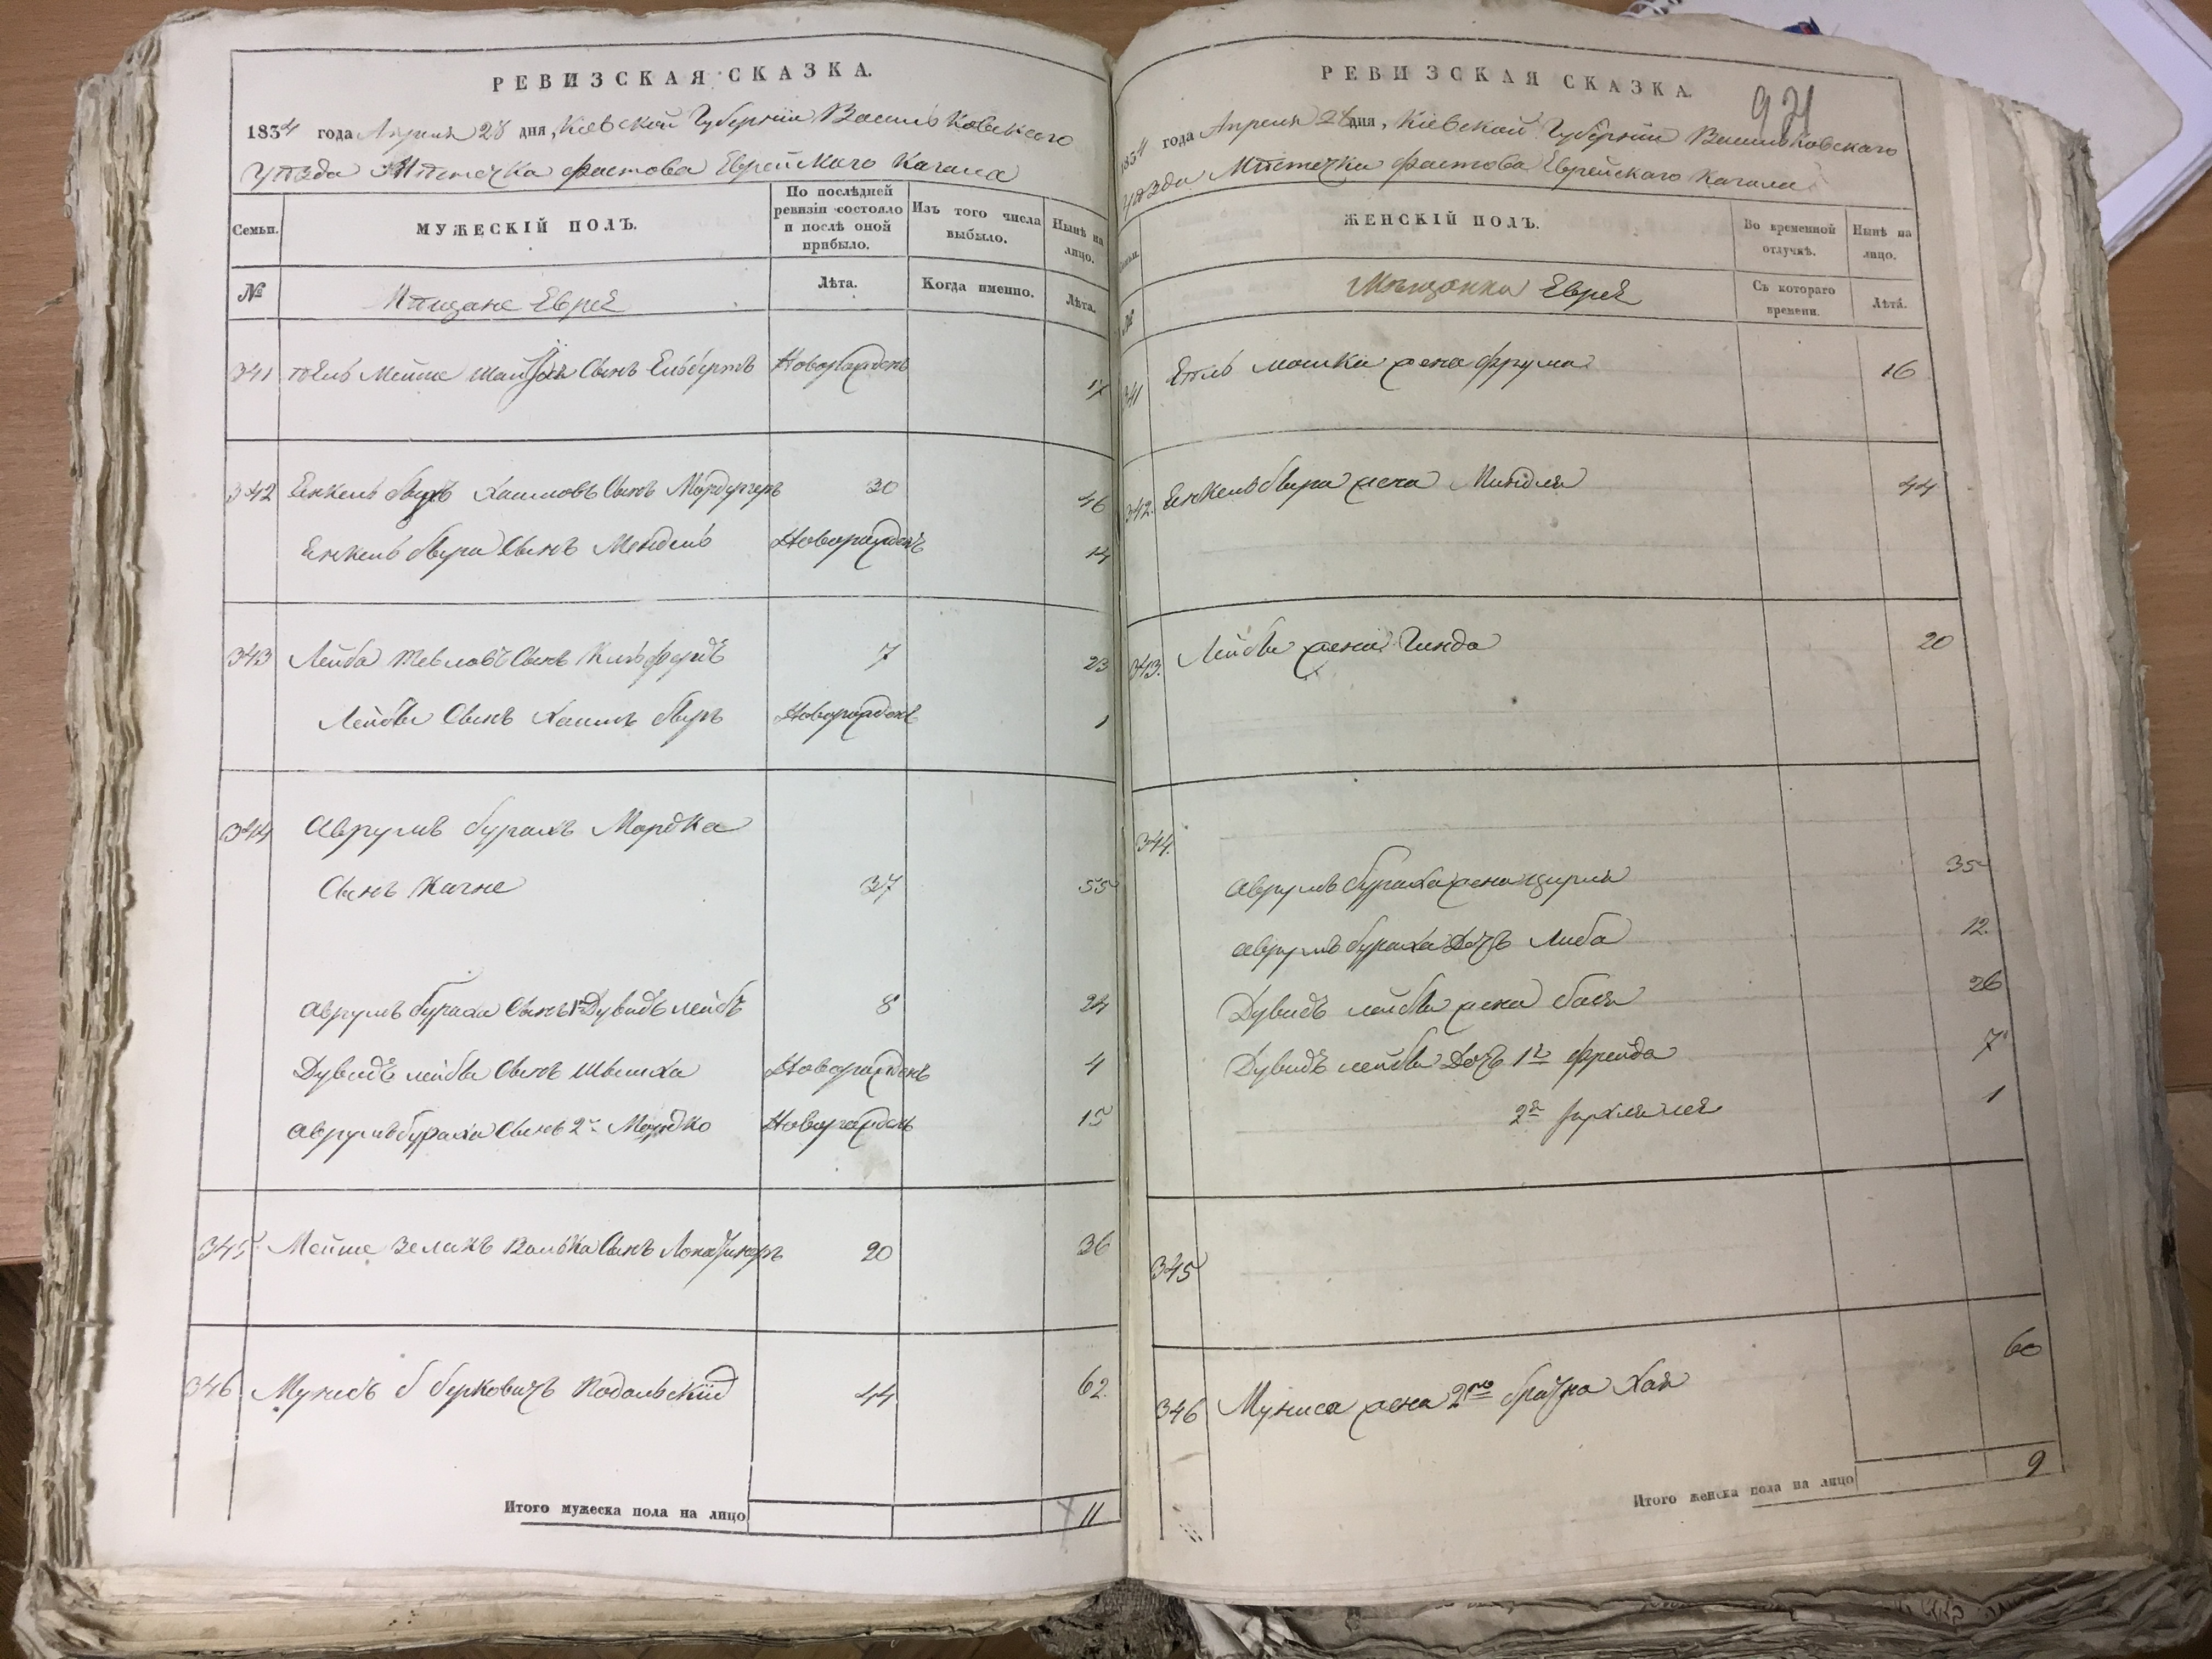 РЕВИЗСКАЯ СКАЗКА.
1834 года Апреля 28 дня, Кіевской Губерніи Васильковского
уѣзда Мѣстечка Фастова Еврейского Кагала
Семьи.
МУЖЕСКІЙ ПОЛЪ.
По послѣдней ревизіи состояло и послѣ оной прибыло.
Изъ того числа выбыло.
Нынѣ на лицо.
№
Мѣщане Евреи
Лѣта.
Когда именно.
Лѣта.
341 Мейше Сынъ Новорожденъ 17
342 Енкель Хаимовъ Сынъ 30 46
Енкель Сынъ Мендель Новорожденъ 14
343 Лейба Тевловъ Сынъ 7 23
Лейбы Сынъ Хаимъ Новорожденъ 1
344 Аврумъ бурахъ Мордка
Сынъ Кагне 37 55
Аврумъ бураха Сынъ 1й Дувидъ лейбъ 8 24
Дувидъ лейбы Сынъ Новорожденъ 4
Аврумъ бураха Сынъ 2й Мордко Новорожденъ 15
345 Мейше Зелихъ Волька Сынъ 20 36
346 Мунисъ Берковичъ Подольскій 44 62.
Итого мужеска пола на лицо 11
РЕВИЗСКАЯ СКАЗКА.
921
1834 года Апреля 28 дня, Кіевской Губерніи Васильковского
уѣзда Мѣстечка Фастова Еврейскаго Кагала
Семьи.
ЖЕНСКІЙ ПОЛЪ.
Во временной отлучкѣ.
Нынѣ на лицо.
№
Мѣщанки Евреи
Съ котораго времени.
Лѣта.
341 мошки жена фрума 16
342. Енкель жена Миндля 44
343. Лейбы жена Гинда 20
344.
Аврумъ бураха жена цирля 35
Аврумъ бураха Дочь Либа 12.
Дувидъ лейбы жена бася 26
Дувидъ лейбы Дочь 1я фрейда 7
2я 1
345
346 Муниса жена 2го брачна Хая 60
Итого женска пола на лицо 9